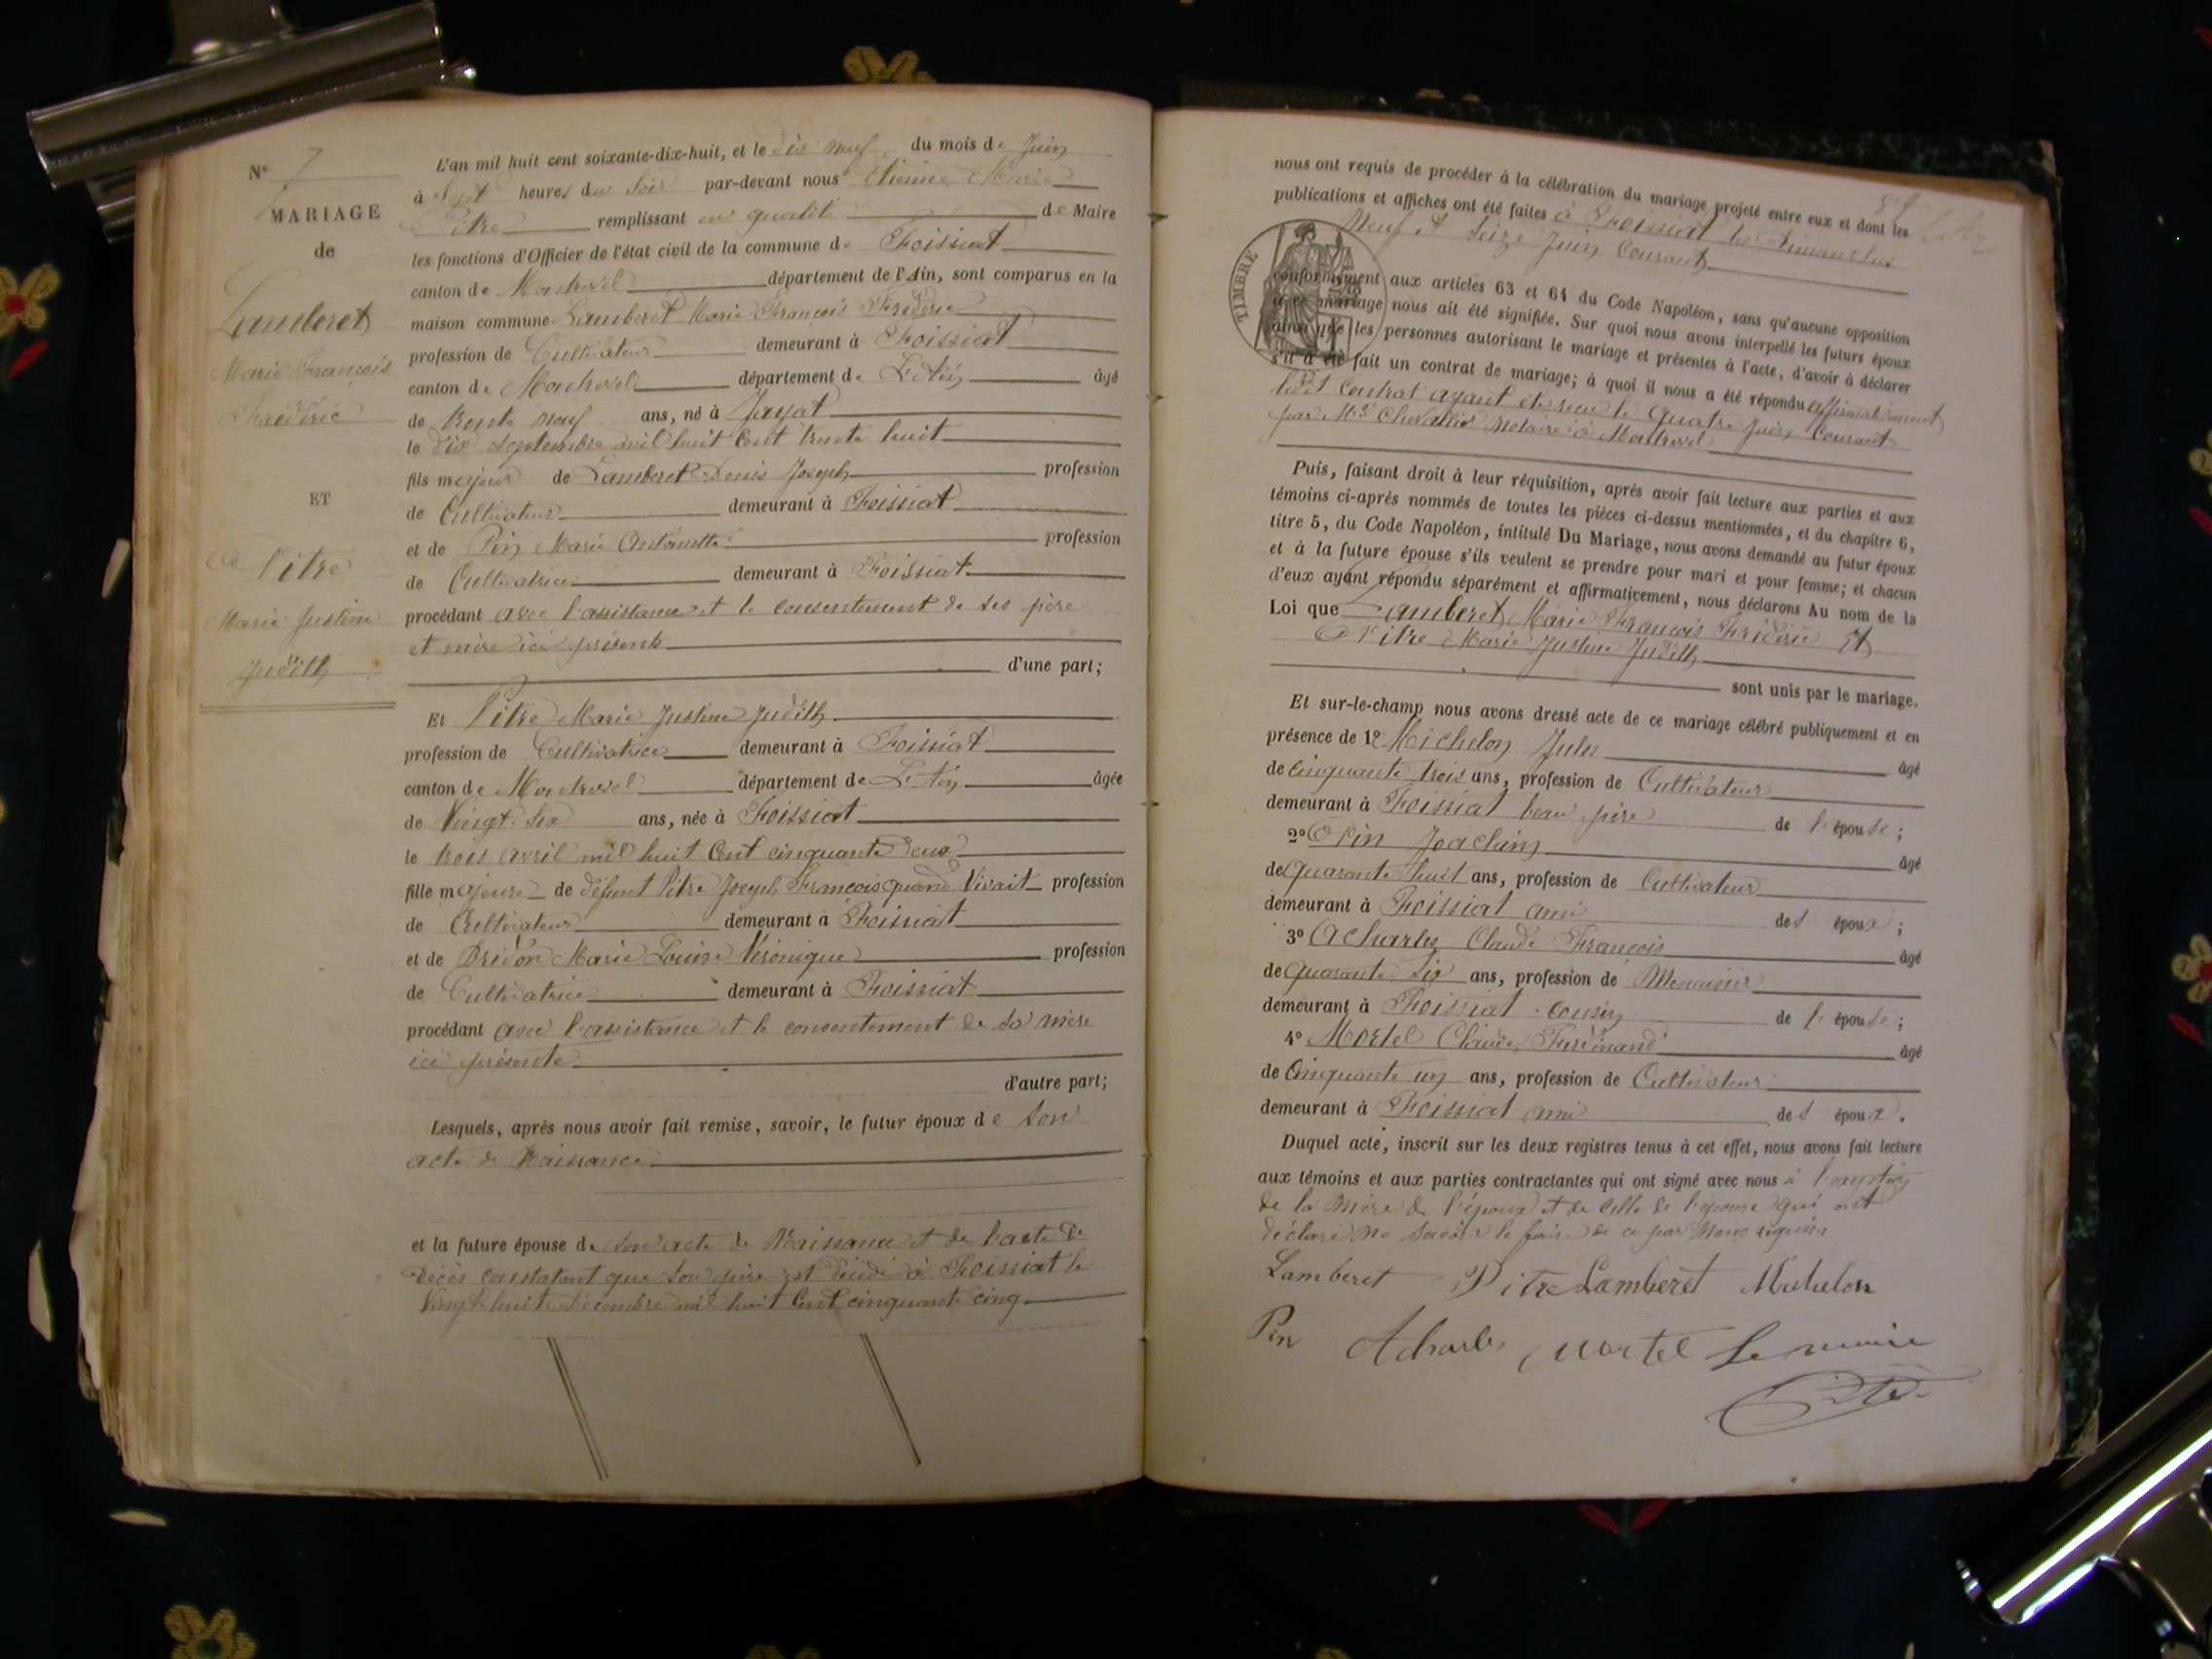 N° 7
MARIAGE
de
Lamberet
Marie François
Fréderic
ET
Pitre
Marie Justine
Judith
L'an mil huit cent soixante-dix-huit, et le dix neuf du mois de Juin
à Sept heures du Soir par-devant nous Etienne Marie
Pitre remplissant en qualité de Maire
les fonctions d'Officier de l'état civil de la commune de Foissiat
canton de Montrevel département de l'Ain, sont comparus en la
maison commune Lamberet Marie François Fréderic
profession de Cultivateur demeurant à Foissiat
canton de Montrevel département de L'Ain âgé
de trente neuf ans, né à Jayat
le dix septembre mil huit cent trente huit
fils majeur de Lamberet Denis Joseph profession
de Cultivateur demeurant à Foissiat
et de Pin Marie Antoinette profession
de Cultivatrice demeurant à Foissiat
procédant avec l'assistance et le consentement de ses père
et mère ici présents
d'une part;
Et Pitre Marie Justine Judith
profession de Cultivatrice demeurant à Foissiat
canton de Montrevel département de L'Ain âgée
de Vingt Six ans, née à Foissiat
le trois avril mil huit cent cinquante deux
fille majeure de défunt Pitre Joseph François quand Vivait profession
de Cultivateur demeurant à Foissiat
et de Bridon Marie Louise Véronique profession
de Cultivatrice demeurant à Foissiat
procédant avec l'assistance et le concentement de sa mère
ici présente
d'autre part;
Lesquels, après nous avoir fait remise, savoir, le futur époux de son
acte de Naissance
et la future épouse de son acte de Naissance et de l'acte de
décès constatant que son père est décédé à Foissiat le
Vingt huit décembre mil huit Cent cinquante cinq
nous ont requis de procéder à la célébration du mariage projeté entre eux et dont les
publications et affiches ont été faites à Foissiat les Dimanches
Neuf et Seize Juin Courant
TIMBRE
conformément aux articles 63 et 64 du Code Napoléon, sans qu'aucune opposition
à ce mariage nous ait été signifiée. Sur quoi nous avons interpellé les futurs époux
ainsi que les personnes autorisant le mariage et présentes à l'acte, d'avoir à déclarer
s'il a été fait un contrat de mariage; à quoi il nous a été répondu affirmativement
ledit contrat ayant été recu le quatre Juin Courant
par Me Chevallier Notaire à Montrevel
Puis, faisant droit à leur réquisition, après avoir fait lecture aux parties et aux
témoins ci-après nommés de toutes les pièces ci-dessus mentionnées, et du chapitre 6,
titre 5, du Code Napoléon, intitulé Du Mariage, nous avons demandé au futur époux
et à la future épouse s'ils veulent se prendre pour mari et pour femme; et chacun
d'eux ayant répondu séparément et affirmativement, nous déclarons Au nom de la
Loi que Lamberet Marie François Fréderic Et
Pitre Marie Justine Judith
sont unis par le mariage.
Et sur-le-champ nous avons dressé acte de ce mariage célébré publiquement et en
présence de 1° Michelon Jules âgé
de cinquante trois ans, profession de Cultivateur
demeurant à Foissiat beau père de l'épouse;
2° Pin Joachim âgé
de quarante huit ans, profession de Cultivateur
demeurant à Foissiat ami des époux;
3° Acharles Claude François âgé
de quarante Six ans, profession de Menuisier
demeurant à Foissiat cousin de l'épouse;
4° Mortel Claude Ferdinand âgé
de Cinquante un ans, profession de Cultivateur
demeurant à Foissiat ami des époux.
Duquel acte, inscrit sur les deux registres tenus à cet effet, nous avons fait lecture
aux témoins et aux parties contractantes qui ont signé avec nous à l'exeption
de la Mère de l'époux et de celle de l'épouse qui ont
déclaré ne savoir le faire de ce par Nous requises
Lamberet Pitre Lamberet Michelon
Pin Acharles Mortel Le maire
Pitre